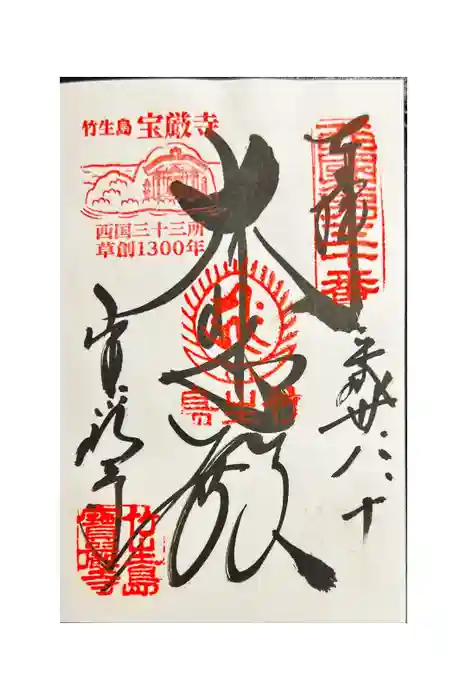 竹生島 宝厳寺
西国三十三所
草創1300年
奉拝
平成卅、八、十
大悲殿
宝厳寺
竹生島
竹生島
寶嚴寺